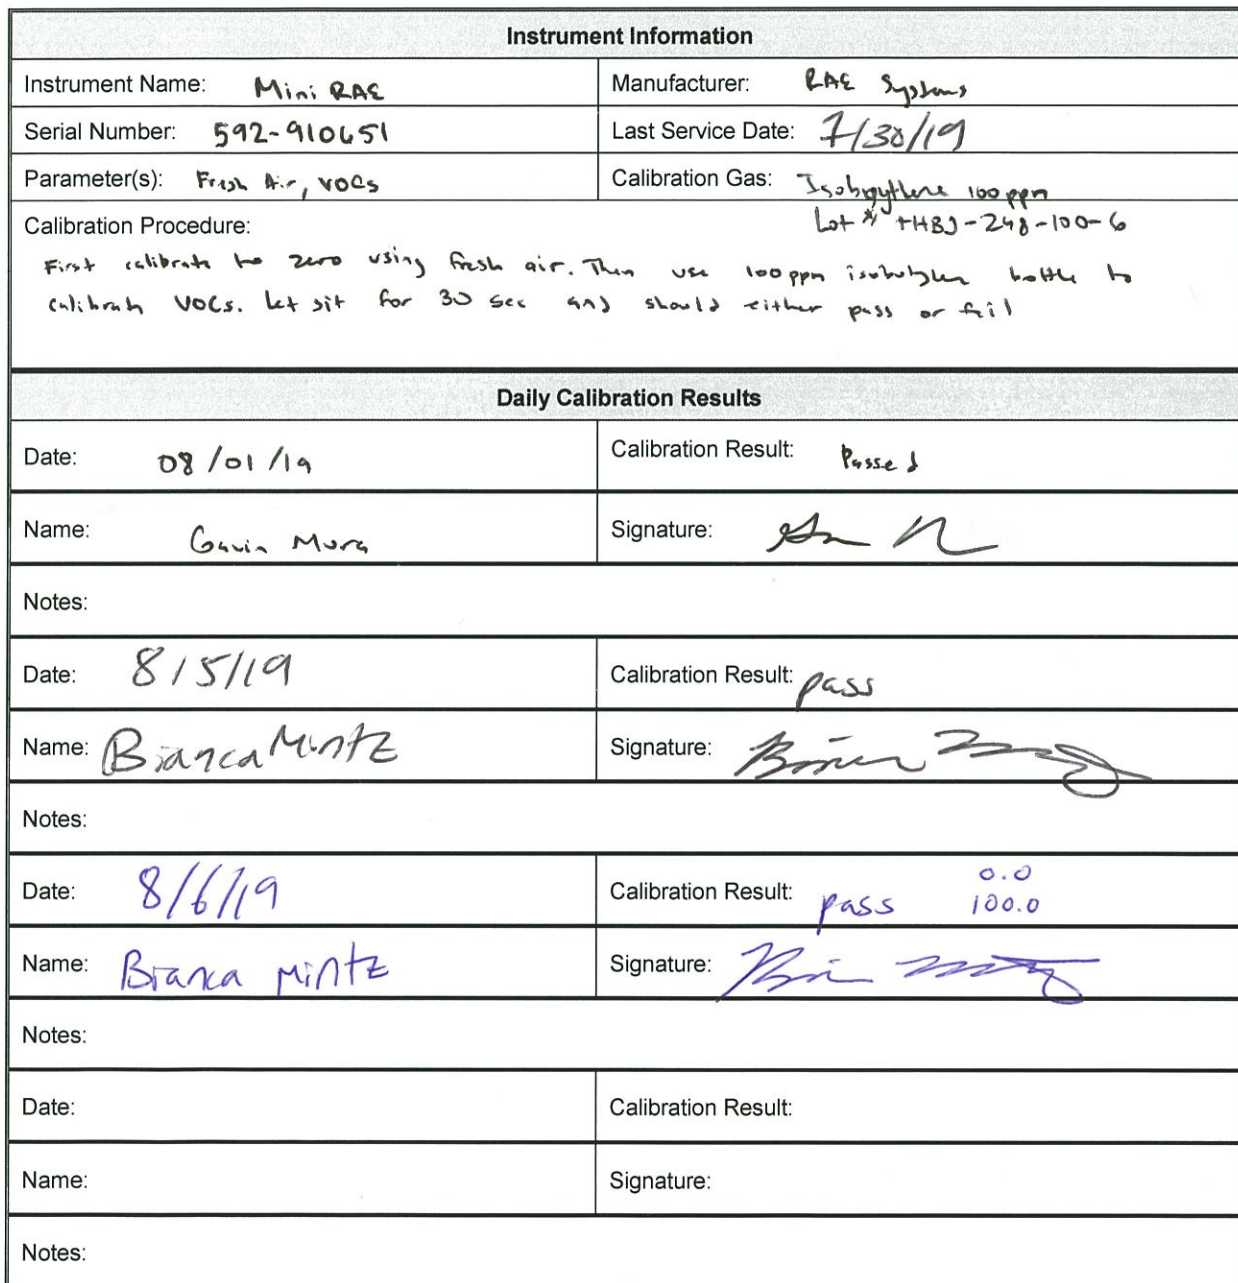 Instrument Information
Instrument Name: Mini RAE
Manufacturer: RAE Systems
Serial Number: 592-910651
Last Service Date: 7/30/19
Parameter(s): Fresh Air, VOCs
Calibration Gas: Isobuytlene 100 ppm
Lot # HBJ-248-100-6
Calibration Procedure:
First calibrate to zero using fresh air. Then use 100ppm isobutylen bottle to
calibrate VOCs. Let sit for 30 sec and should either pass or fail
Daily Calibration Results
Date: 08/01/19
Calibration Result: Passed
Name: Gavin Mura
Signature:
Notes:
Date: 8/5/19
Calibration Result: pass
Name: Bianca Mintz
Signature:
Notes:
Date: 8/6/19
Calibration Result: pass 0.0
100.0
Name: Bianca Mintz
Signature:
Notes:
Date:
Calibration Result:
Name:
Signature:
Notes: